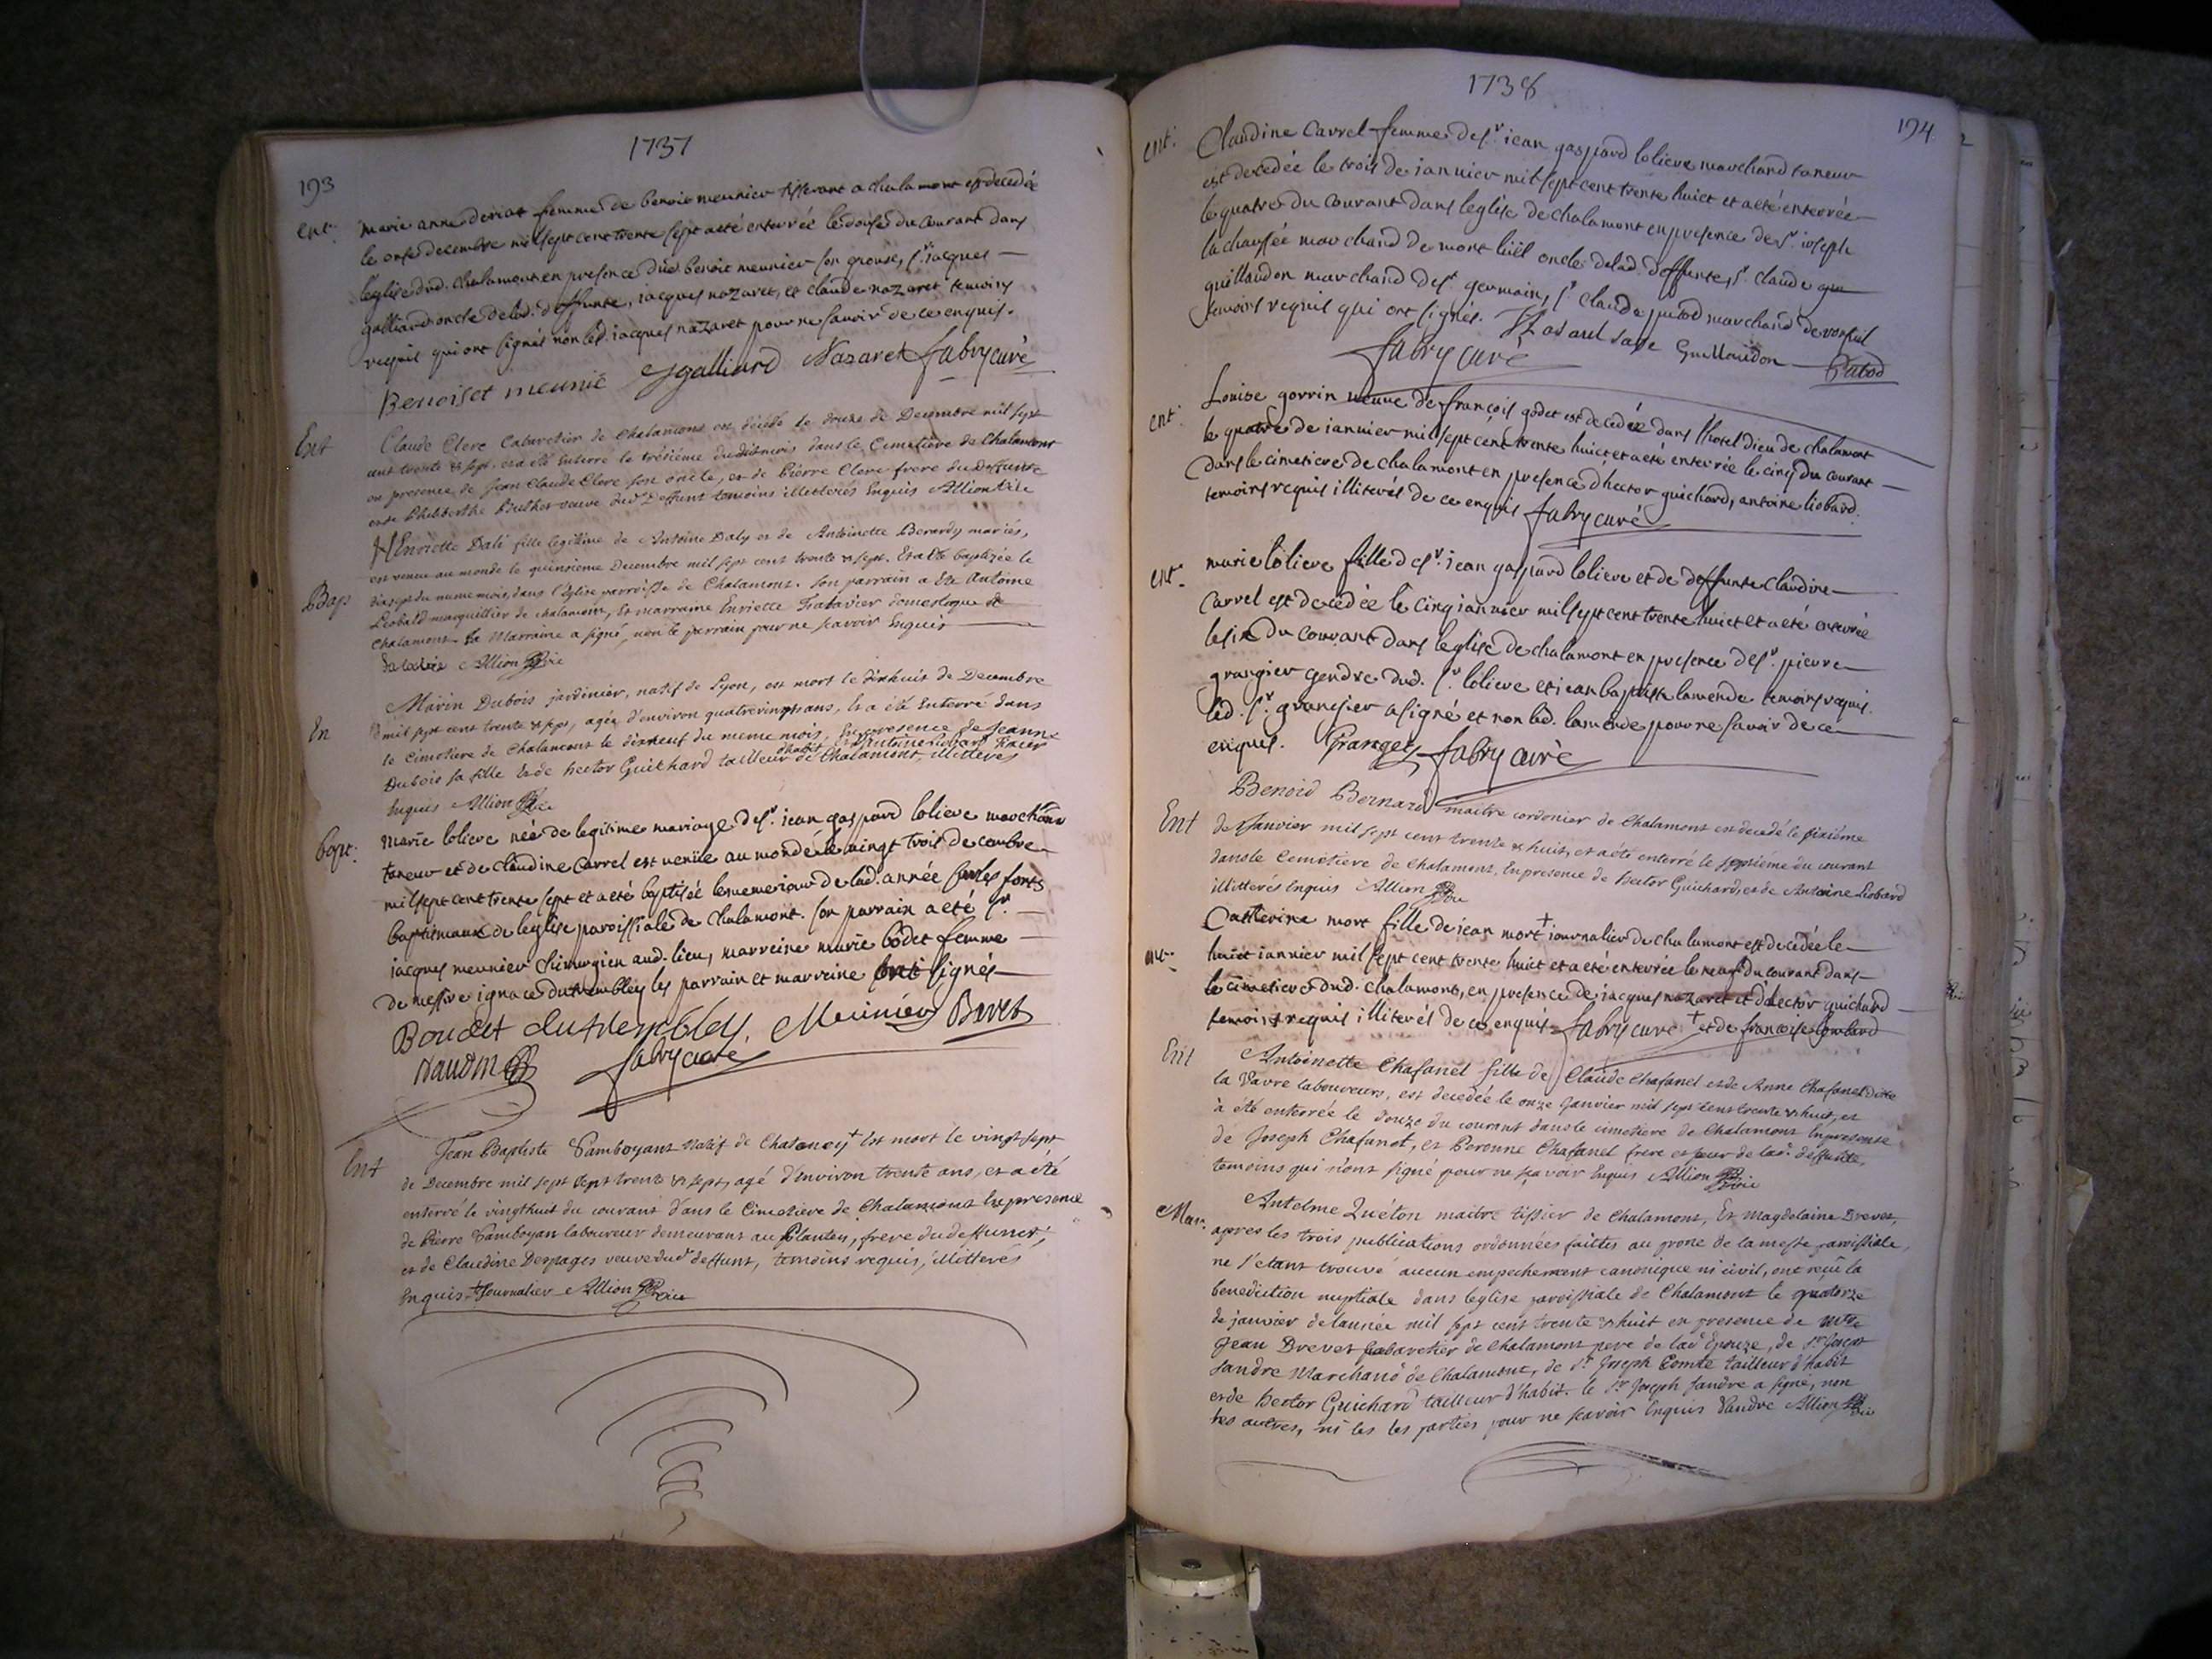 1737
193
ent. marie anne deriat femme de benoit meunier tisserant a chalamont est decedée
le onse decembre mil sept cent trente sept a eté enterrée le douse du courant dans
leglise dud. chalamont en presence dud. benoit meunier son epouse, sr. jacques
galliard oncle de lad. deffunte, jacques nazaret, et claude nazaret temoins
requis qui ont signés non led. jacques nazaret pour ne savoir de ce enquis.
Benoist meunié Jgalliard Nazaret fabry curé
Ent Claude Clerc Cabaretier de Chalamont est décédé le douze de Decembre mil sept
cent trente & sept, et a été enterré le trésiéme dudit mois dans le Cimetière de Chalamont
en presence de Jean Claude Clerc son oncle, et de Pierre Clerc frere du Deffunt
et de Philiberthe veuve dud Deffunt temoins illitterés Enquis Allion vic
Bap HEnriette Dalé fille legitime de Antoine Daly et de Antoinette Berardy mariés,
est venue au monde le quinsieme Decembre mil sept cent trente & sept. Et a été baptizée le
du meme mois, dans l'Eglise parroisse de Chalamont. son parrain a été Antoine
Liobard marguillier de chalamont, Et marraine Enriette domestique de
Chalamont la Marraine a signé, non le parrain pour ne scavoir Enquis
Allion vic
En Marin Dubois jardinier, natif de Lyon, est mort le dixhuit de Decembre
mil sept cent trente & sept, agée d'environ quatrevingts ans, Et a été Enterré dans
le Cimetière de Chalamont le dixneuf du meme mois, En presence de Jeanne
Dubois sa fille Et de hector Guichard tailleur d'habit de Chalamont, illitterés
Enquis Allion vic
bapt. marie loliere née de legitime mariage de sr. jean gaspard loliere marchand
taneur et de claudine carrel est venüe au monde le vingt trois decembre
mil sept cent trente sept et a eté baptisée le meme jour de lad. année sur les fonts
baptismaux de leglise paroissiale de chalamont. son parrain a eté sr.
jacques meunier chirurgien aud. lieu, marreine marie bodet femme
de messire ignace dutrembley les parrain et marreine ont signés
Boudet dutrembley. Meunier Brevet
Naudin fabry curé
Ent Jean Baptiste Tamboyant natif de Chataney + Est mort le vingt sept
de Decembre mil sept sept trente & sept, agé d'environ trente ans, et a été
enterré le vingthuit du courant dans le Cimetière de Chalamont En presence
de Pierre Tamboyan laboureur demeurant au Plantey, frere du deffunct,
et de Claudine Desplages veuve dud deffunt, temoins requis, illitterés
Enquis + Journalier Allion vic
1738
194
ent. Claudine Carrel femme de sr. jean gaspard loliere marchand taneur
est decedée le trois de janvier mil sept cent trente huict et a eté enterrée
le quatre du courant dans leglise de chalamont en presence de sr. joseph
la chaussée marchand de mont luël oncle de lad. deffunte, sr. claude
guillaudon marchand de st. germain, sr. claude putod marchand de
temoins requis qui ont signés. Guillaudon Putod
fabry curé
ent. Louise gorrin veuve de françois godet est decedée dans lhotel dieu de chalamont
le quatre de janvier mil sept cent trente huict et a eté enterrée le cinq du courant
dans le cimetiere de chalamont en presence d'hector guichard, antoine liobard
temoins requis illiterés de ce enquis fabry curé
ent. marie loliere fille de sr. jean gaspard loliere et de deffunte claudine
carrel est decedée le cinq janvier mil sept cent trente huict et a eté enterrée
le six du courant dans leglise de chalamont en presence de sr. pierre
grangier gendre dud. sr. loliere et jean baptiste lamende temoins requis
led. sr. grangier a signé et non led. lamende pour ne savoir de ce
enquis. Granger fabry curé
Ent Benoid Bernard maitre cordonier de Chalamont est decedé le sixiéme
de Janvier mil sept cent trente & huit, et a été enterré le septiéme du courant
dans le Cemetière de Chalamont, En presence de hector Guichard, et de Antoine Liobard
illitterés Enquis Allion vic
ent. Catterine mort fille de jean mort + journalier de chalamont est decedée le
huict janvier mil sept cent trente huict et a eté enterrée le neuf du courant dans
le cimetiere dud. chalamont, en presence de jacques nazaret et d'hector guichard
temoins requis illiterés de ce enquis fabry curé + et de françoise
Ent Antoinette Chafanel fille de Claude Chafanel et de Anne Chafanel dite
la Favre laboureurs, est decedée le onze Janvier mil sept cens trente & huit, et
à été enterrée le douze du courant dans le cimetiere de Chalamont En presence
de Joseph Chafanet, et Perenne Chafanel frere et sœur de lad. deffunte,
temoins qui n'ont signé pour ne sçavoir Enquis Allion vic
Mar. Antelme Quéton maitre tissier de Chalamont, Et Magdelaine Brevet,
apres les trois publications ordonnées faittes au prone de la messe parroissiale,
ne s'etant trouvé aucun empechement canonique ni civil, ont reçu la
benediction nuptiale dans leglise parroissiale de Chalamont le quatorze
de janvier de lannée mil sept cent trente & huit en presence de Mtre
Jean Brevet Cabaretier de Chalamont pere de lad Epouze, de Sr Joseph
Sandre Marchand de Chalamont, de Sr Joseph Comte tailleur d'habit
et de hector Guichard tailleur d'habit. le Sr Joseph Sandre a signé, non
les autres, ni les les parties pour ne scavoir Enquis Sandre Allion vic